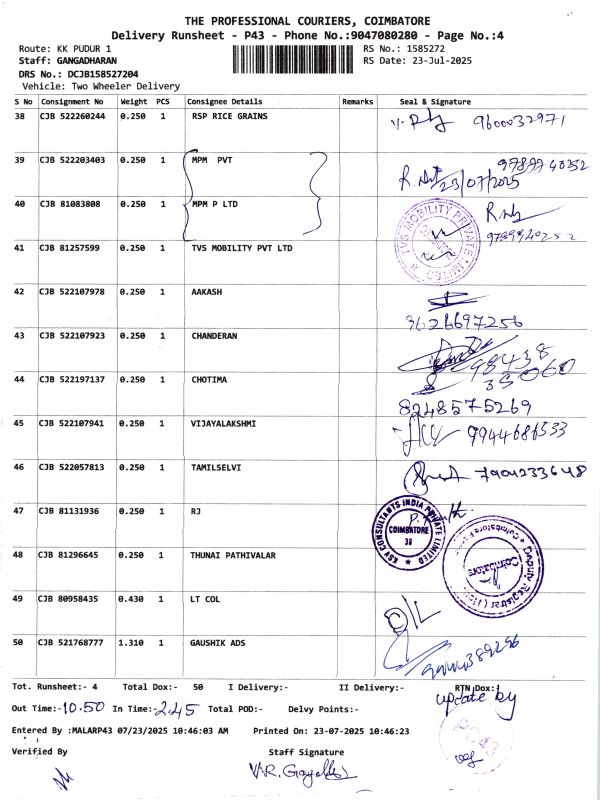 THE PROFESSIONAL COURIERS, COIMBATORE
Delivery Runsheet - P43 - Phone No.:9047080280 - Page No.:4
Route: KK PUDUR 1 RS No.: 1585272
Staff: GANGADHARAN RS Date: 23-Jul-2025
DRS No.: DCJB158527204
Vehicle: Two Wheeler Delivery
S No Consignment No Weight PCS Consignee Details Remarks Seal & Signature
38 CJB 522260244 0.250 1 RSP RICE GRAINS 9600032971
39 CJB 522203403 0.250 1 MPM PVT 9789940252
23/07/2025
40 CJB 81083808 0.250 1 MPM P LTD
TVS MOBILITY PRIVATE LIMITED
9789940252
41 CJB 81257599 0.250 1 TVS MOBILITY PVT LTD
42 CJB 522107978 0.250 1 AAKASH
9626697256
43 CJB 522107923 0.250 1 CHANDERAN
98438
35060
44 CJB 522197137 0.250 1 CHOTIMA
8248575269
45 CJB 522107941 0.250 1 VIJAYALAKSHMI 9944686533
46 CJB 522057813 0.250 1 TAMILSELVI 7904233648
47 CJB 81131936 0.250 1 RJ
KSV CONSULTANTS INDIA PRIVATE LIMITED
COIMBATORE
38
48 CJB 81296645 0.250 1 THUNAI PATHIVALAR
Deputy Registrar
Coimbatore
49 CJB 80958435 0.430 1 LT COL
50 CJB 521768777 1.310 1 GAUSHIK ADS
Tot. Runsheet:- 4 Total Dox:- 50 I Delivery:- II Delivery:- RTN Dox:
update by
Out Time:- 10.50 In Time:- 2.45 Total POD:- Delvy Points:-
Entered By :MALARP43 07/23/2025 10:46:03 AM Printed On: 23-07-2025 10:46:23
PC 43
Verified By Staff Signature